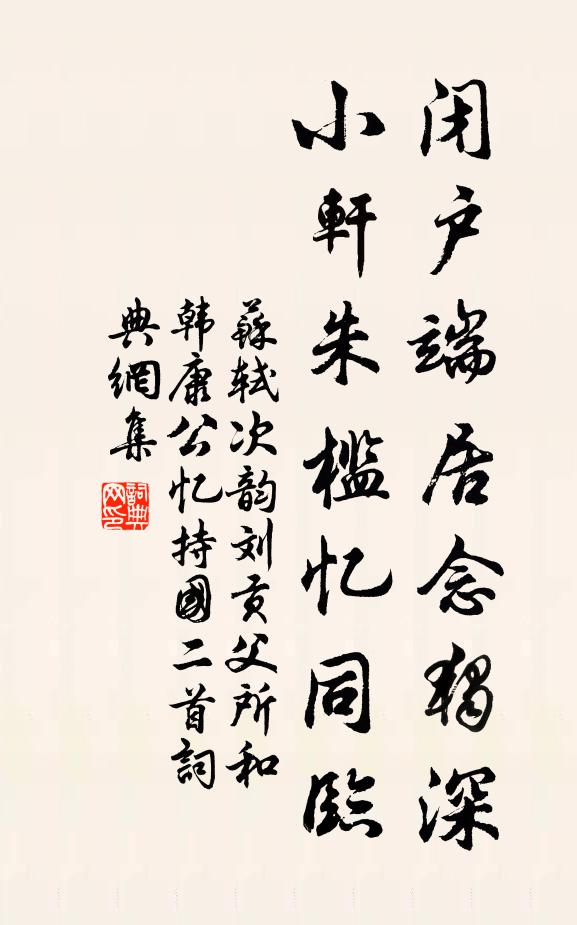 闭户端居念独深
小軒朱槛忆同臨
蘇轼次韵刘贡父所和
韩康公忆持國二首詞
典網集
詞典网印